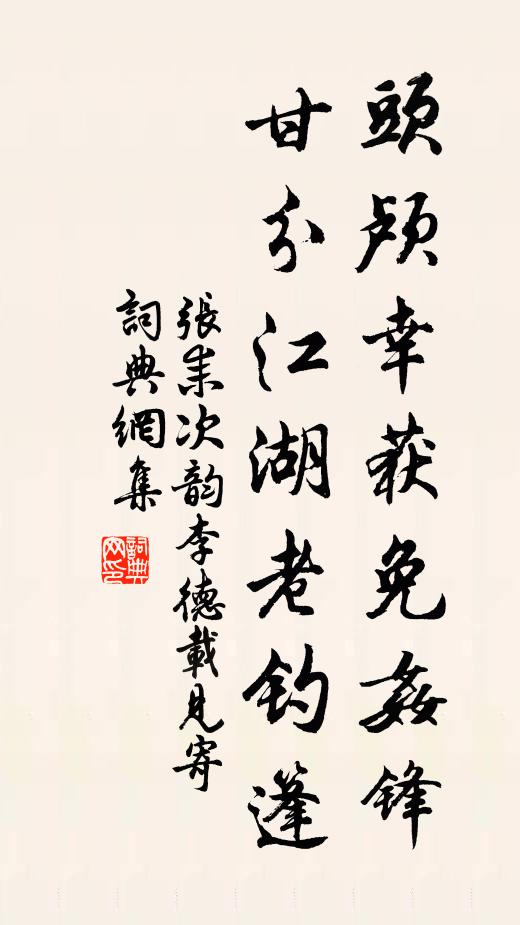 頭颅幸获免姦鋒
甘分江湖老钓篷
張耒次韵李德載見寄
詞典網集
詞典网印